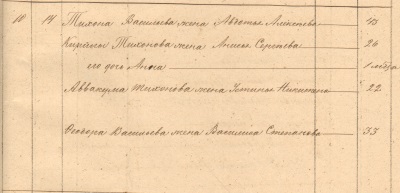 10 14 Тихона Васильева жена Авдотья Алексеева 45
Кирилы Тихонова жена Анисья Сергеева 26
его дочь Анна 1 недел.
Аввакума Тихонова жена Устинья Никитина 22
Феодора Васильева жена Василиса Степанова 33